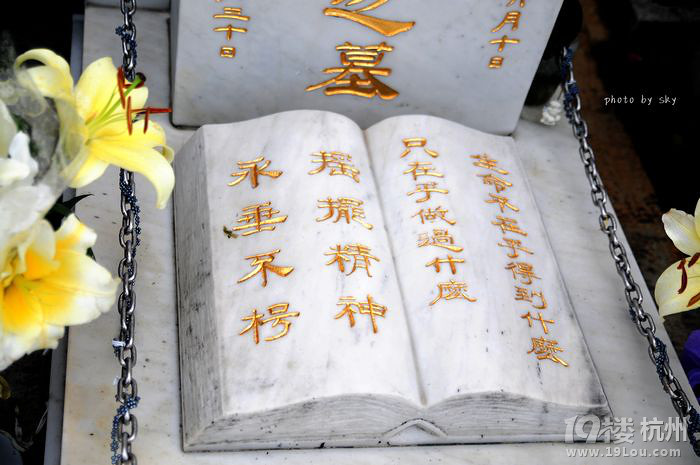 之墓
月十日
三十日
photo by sky
生命不在乎得到什麼
只在乎做過什麼
搖擺精神
永垂不朽
19楼 杭州
www.19Lou.com